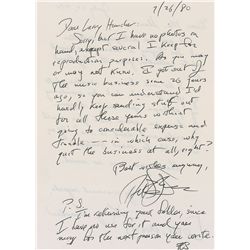 2/26/80
Dear Larry Hancher —
Sorry, but I have no photos on
hand, except several I keep for
reproduction purposes. As you may
or may not know, I got out of
the music business some 26 years
ago, so you can understand I'd
hardly keep sending stuff out
for all those years without
going to considerable expense and
trouble — in which case, why
quit the business at all, right?
Best wishes anyway,
P.S.
I'm returning your dollar, since
I have no use for it and you
may for the next person you write.
AS